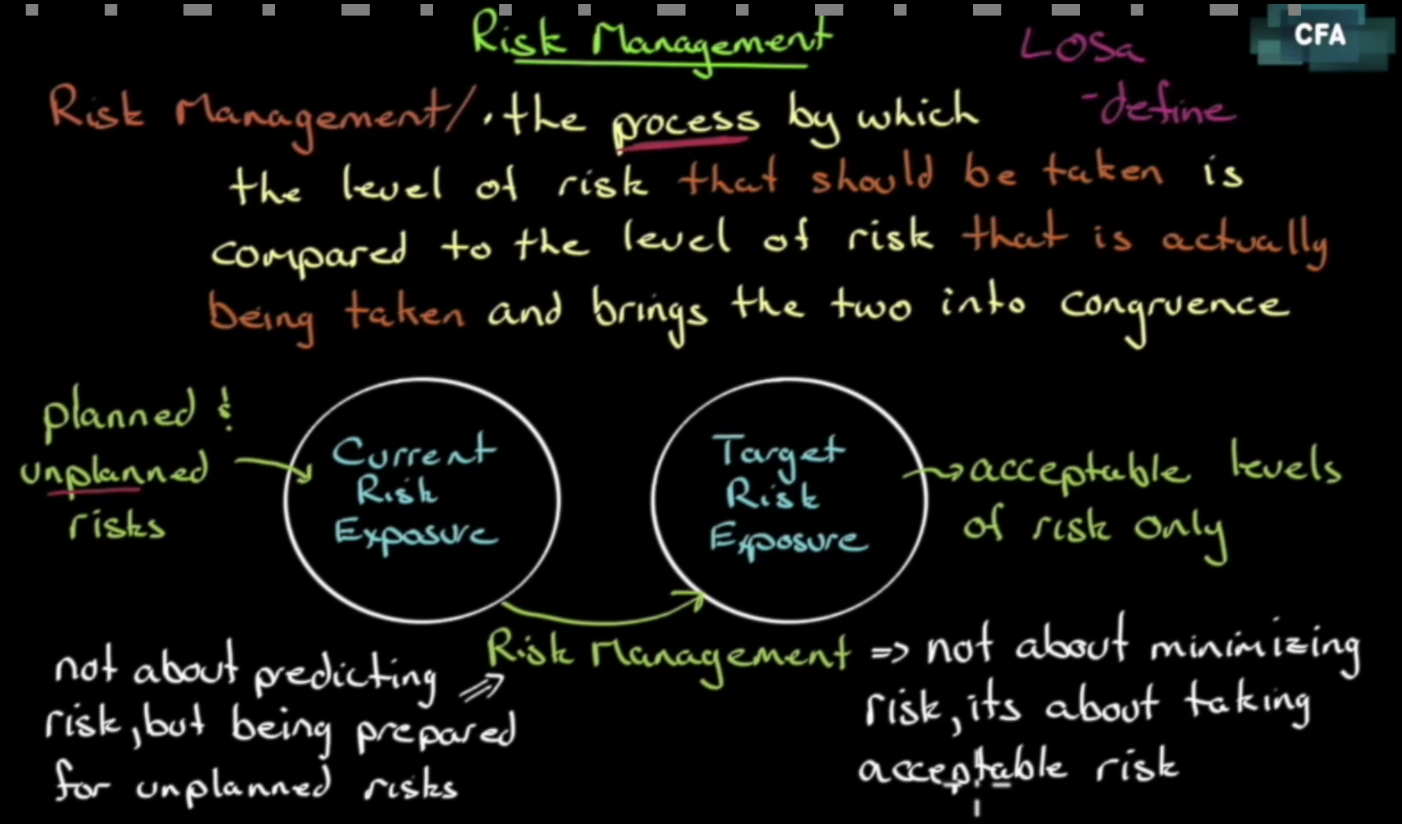 Risk Management
LOSa
CFA
-define
Risk Management/ . the process by which
the level of risk that should be taken is
compared to the level of risk that is actually
being taken and brings the two into congruence
planned &
unplanned
risks
Current
Risk
Exposure
Target
Risk
Exposure
→ acceptable levels
of risk only
Risk Management
not about predicting ⇒
risk, but being prepared
for unplanned risks
=> not about minimizing
risk, its about taking
acceptable risk